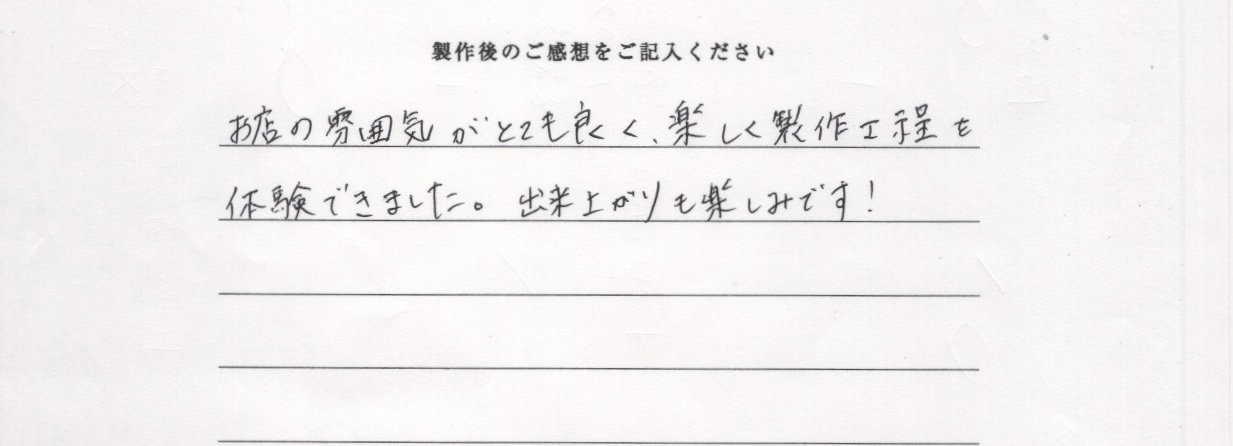 製作後のご感想をご記入ください
お店の雰囲気がとても良く、楽しく製作工程を
体験できました。出来上がりも楽しみです！